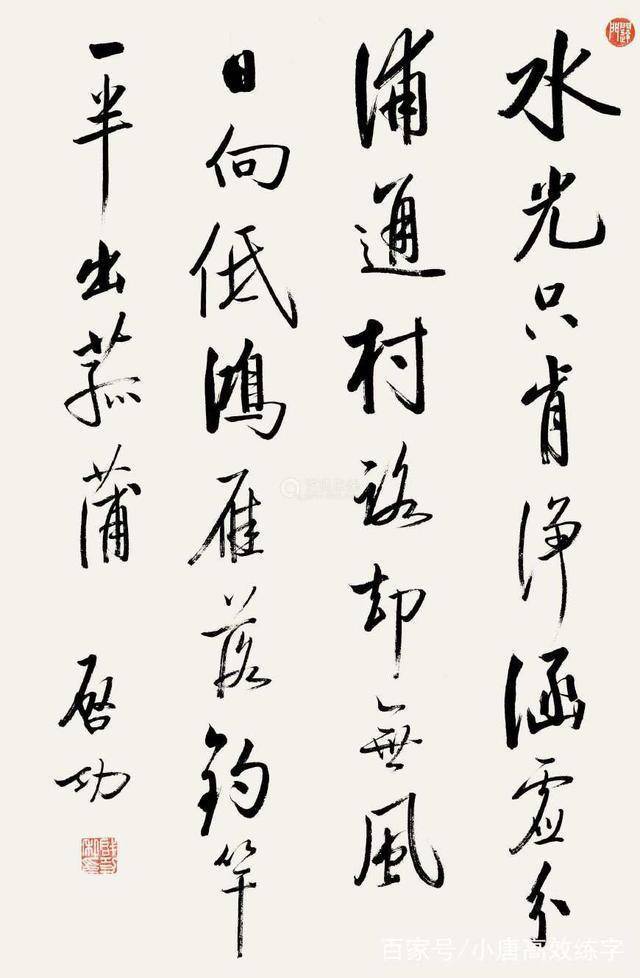 水光只肯浄涵虚分
浦通村路却無風
日向低鴻雁落釣竿
一半出菰蒲
启功
百家号/小唐高效练字